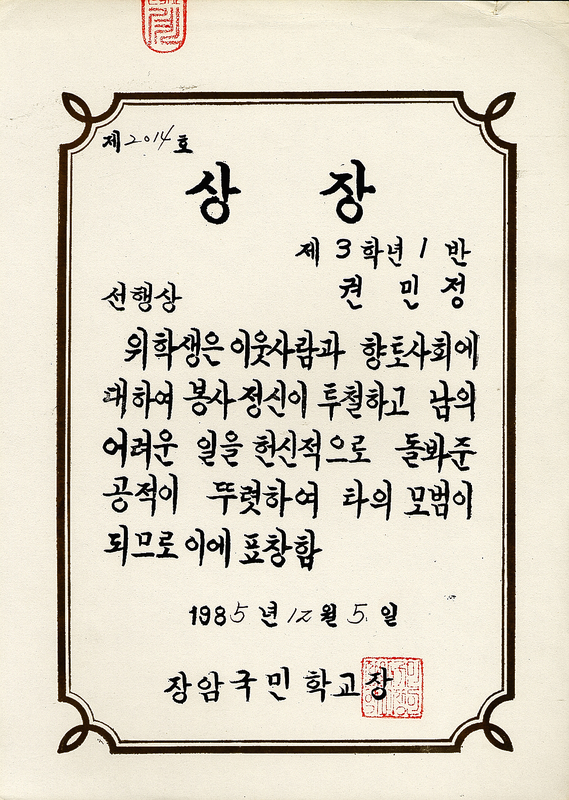 제2014호
상 장
제 3 학년 1 반
권 민 정
선행상
위 학생은 이웃사람과 향토사회에
대하여 봉사정신이 투철하고 남의
어려운 일을 헌신적으로 돌봐준
공적이 뚜렷하여 타의 모범이
되므로 이에 표창함
1985년 12월 5일
장암국민학교장